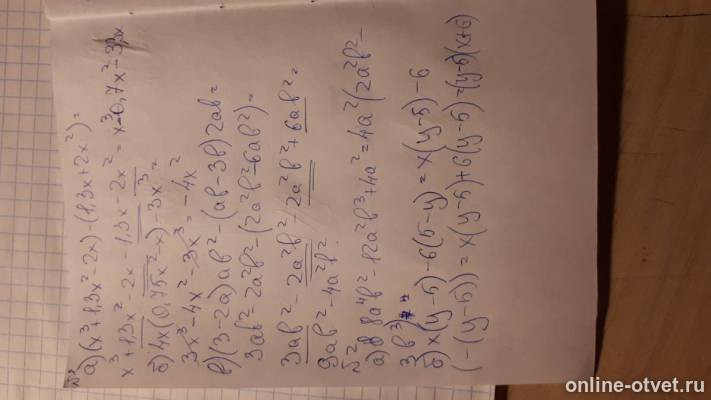 а) (x³+1,3x²-2x)-(1,3x+2x²)=
x³+1,3x²-2x-1,3x-2x²=x³-0,7x²-3,3x
б) 4x(0,75x²-x)-3x³=
3x³-4x²-3x³=-4x²
в) (3-2a)ab²-(ab-3b)2ab=
3ab²-2a²b²-(2a²b²-6ab²)=
3ab²-2a²b²-2a²b²+6ab²=
9ab²-4a²b².
№2
а) 8a⁴b²-12a²b³+4a²=4a²(2a²b²-
3b³)
б) x(y-5)-6(5-y)=x(y-5)-6
(-(y-5))=x(y-5)+6(y-5)=(y-5)(x+6)
online-otvet.ru